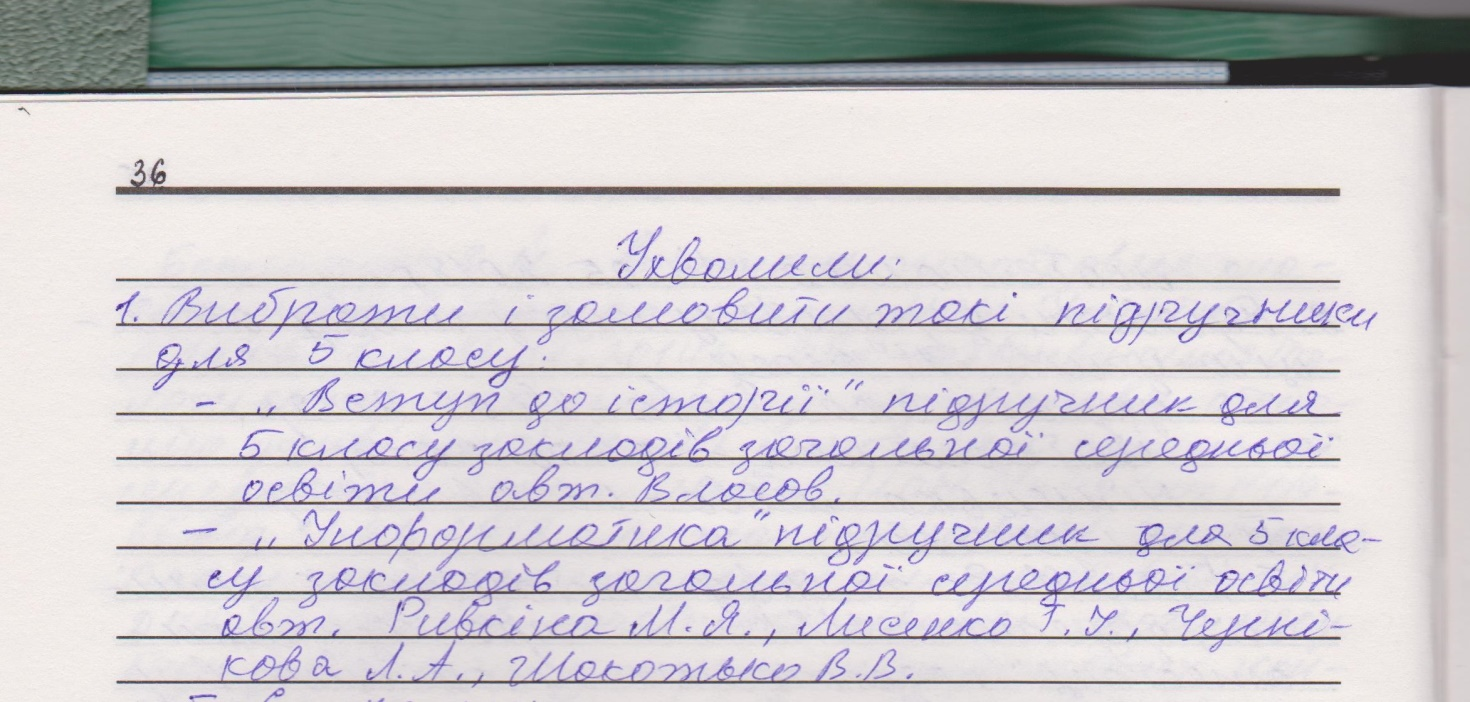 36
Ухвалили:
1. Вибрати і замовити такі підручники
для 5 класу:
- „Вступ до історії" підручник для
5 класу закладів загальної середньої
освіти авт. Власов.
- „Інформатика" підручник для 5 кла-
су закладів загальної середньої освіти
авт. Ривкінд Й.Я., Лисенко Т.І., Черні-
кова Л.А., Шакотько В.В.